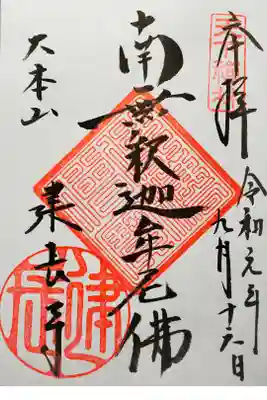 奉拝
令和元年
九月十六日
南無釈迦牟尼佛
大本山
建長寺